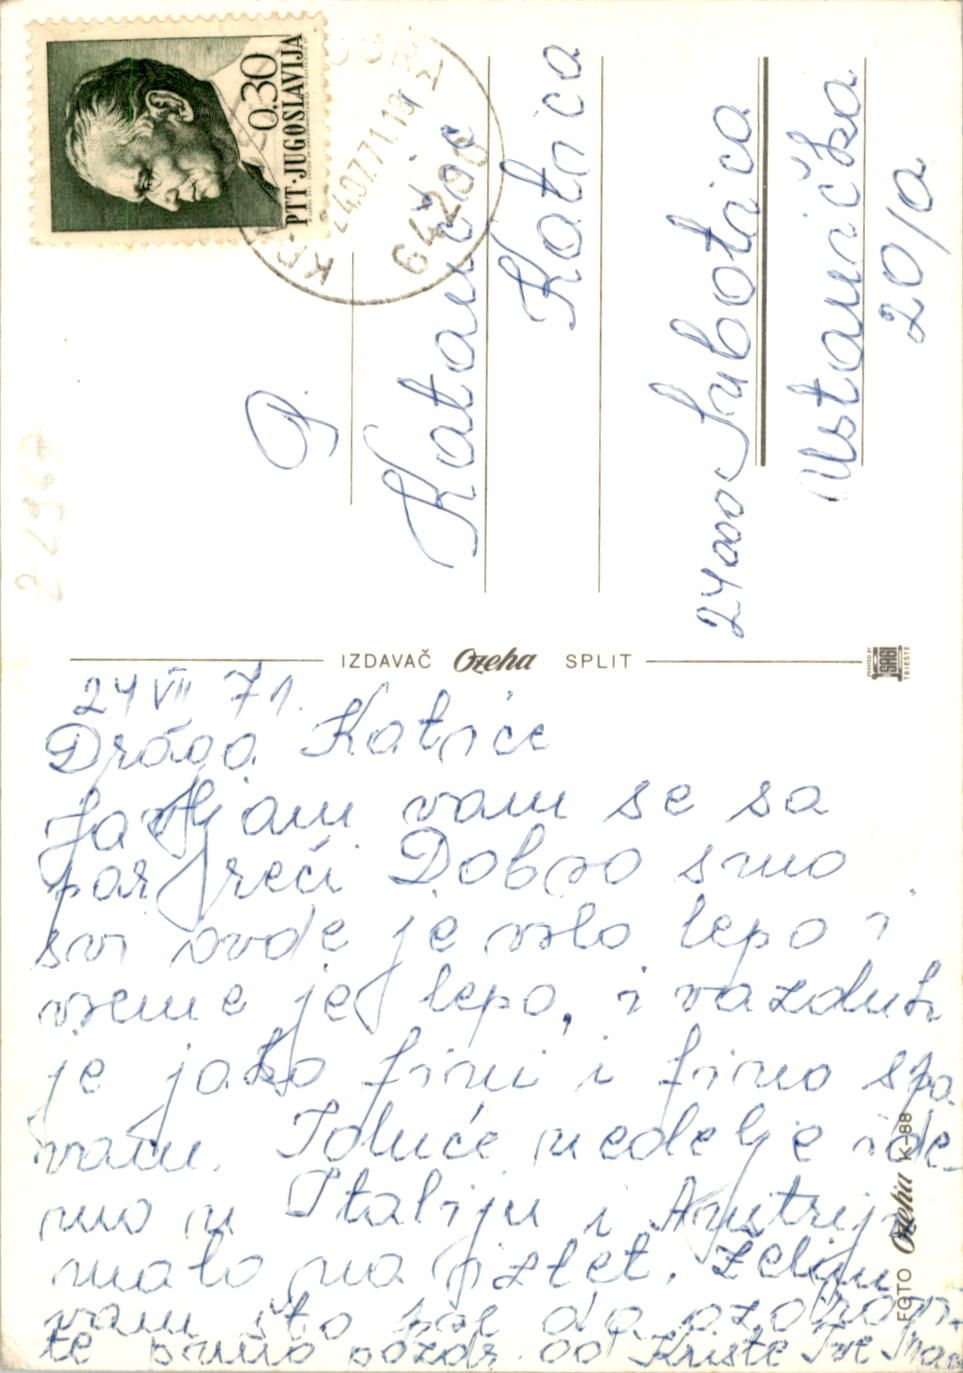 0.30
PTT·JUGOSLAVIJA
24.07.71.19
64200
P.
Katanić
Katica
24000 Subotica
Ustanička
20/a
IZDAVAČ Ozeha SPLIT
PRINTED BY SAGI TRIESTE
24 VII 71.
Draga Katice
Javljam vam se sa
par reči Dobro smo
svi ovde je vrlo lepo i
vreme je lepo, i vazduh
je jako fini i fino spa
vam. Iduće nedelje ide
mo u Italiju i Austriju
malo na izlet. Želim
vam što pre da ozdravi
te puno pozdr. od Kriste Tvr
FOTO Ozeha K-88